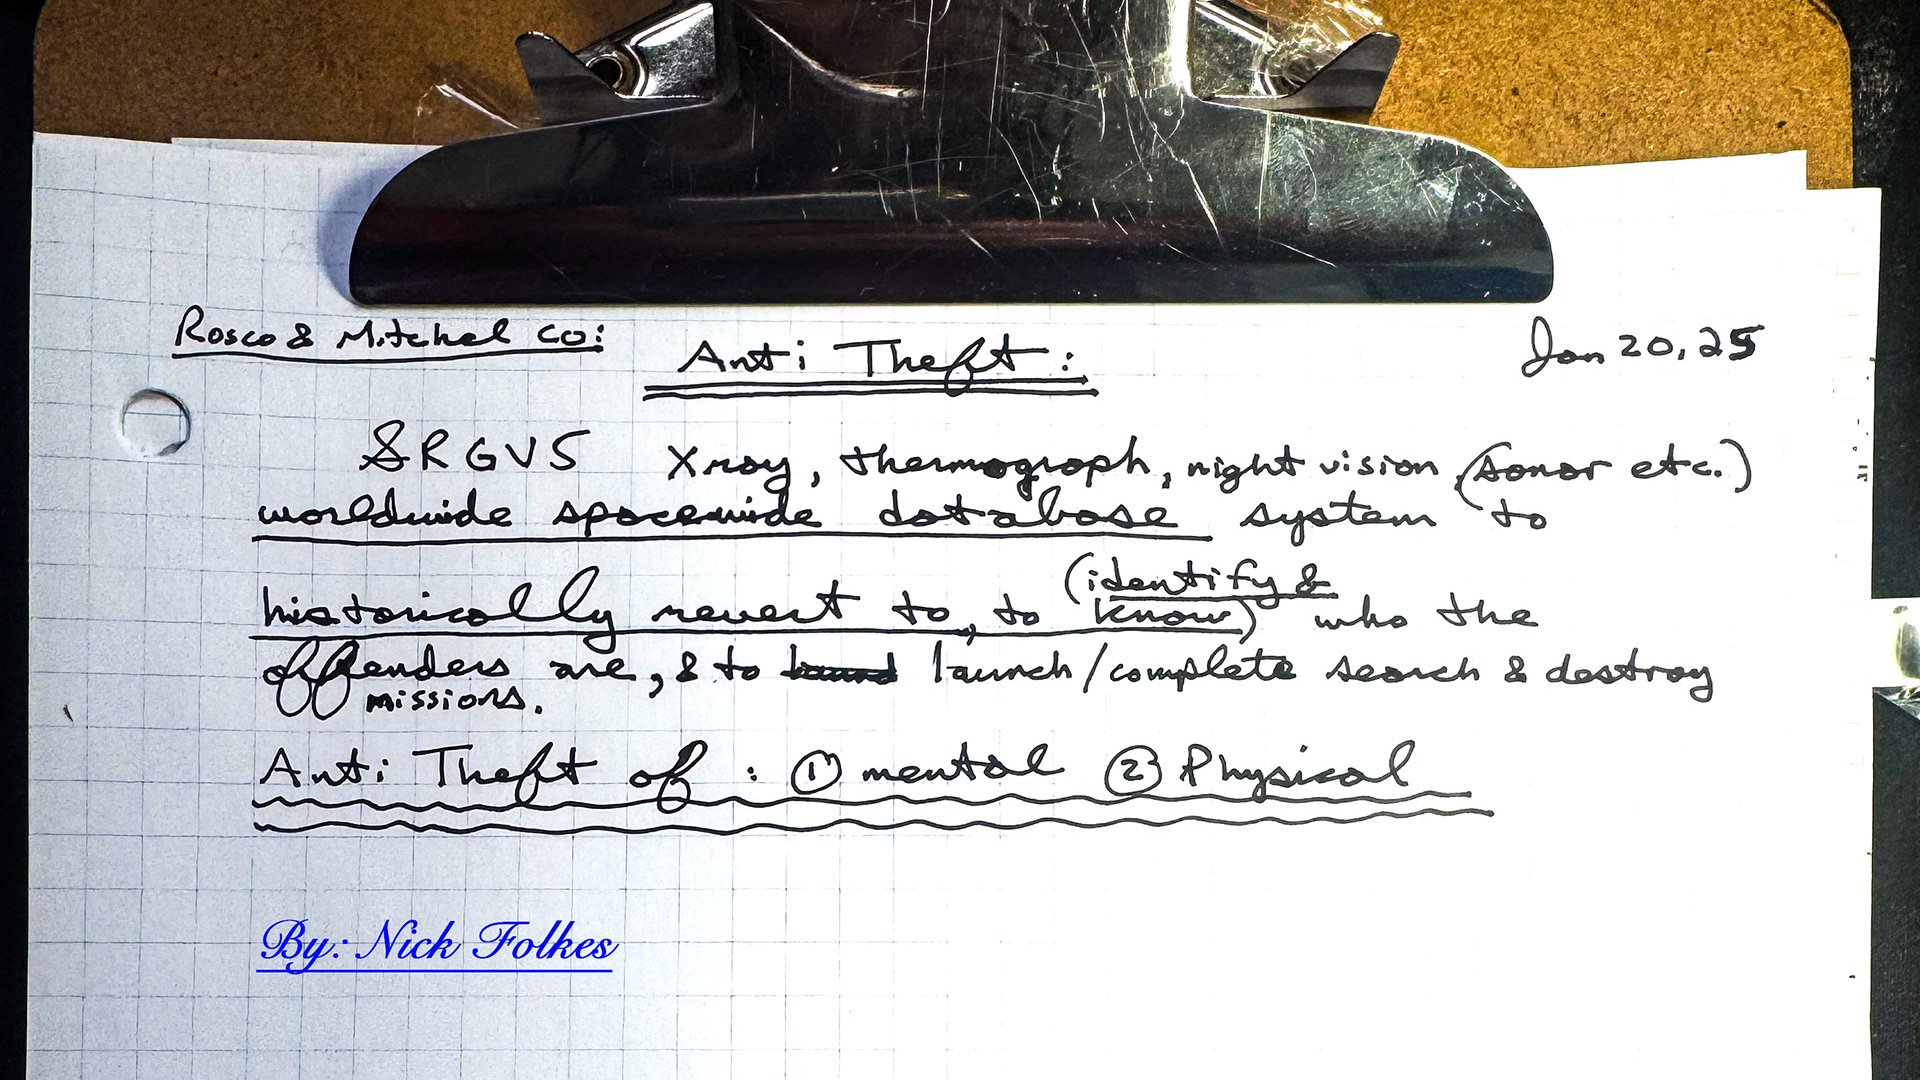 Rosco & Mitchel Co:
Anti Theft:
Jan 20, 25
SRGVS Xray, thermograph, night vision, (sonar etc.)
worldwide spacewide database system to
(identify &
historically revert to, to know) who the
offenders are, & to launch/complete search & destroy
missions.
Anti Theft of: ① mental ② Physical
By: Nick Folkes